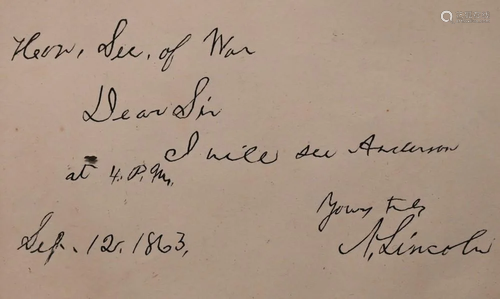 Hon. Sec. of War
Dear Sir
I will see Anderson
at 4. P.M.
Yours truly
A. Lincoln
Sep. 12. 1863.